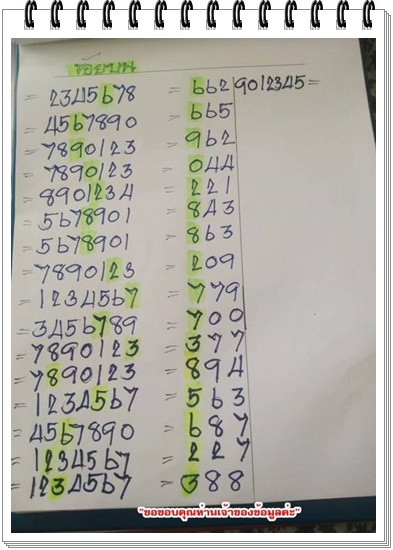 ร้อยบน
= 2345678 = 662 9012345=
= 4567890 = 665
= 7890123 = 962
= 7890123 = 044
= 8901234 = 221
= 5678901 = 843
= 5678901 = 863
= 7890123 = 209
= 1234567 = 779
= 3456789 = 700
= 7890123 = 377
= 7890123 = 894
= 1234567 = 563
= 4567890 = 687
= 1234567 = 227
= 1234567 = 388
"ขอขอบคุณท่านเจ้าของข้อมูลค่ะ"